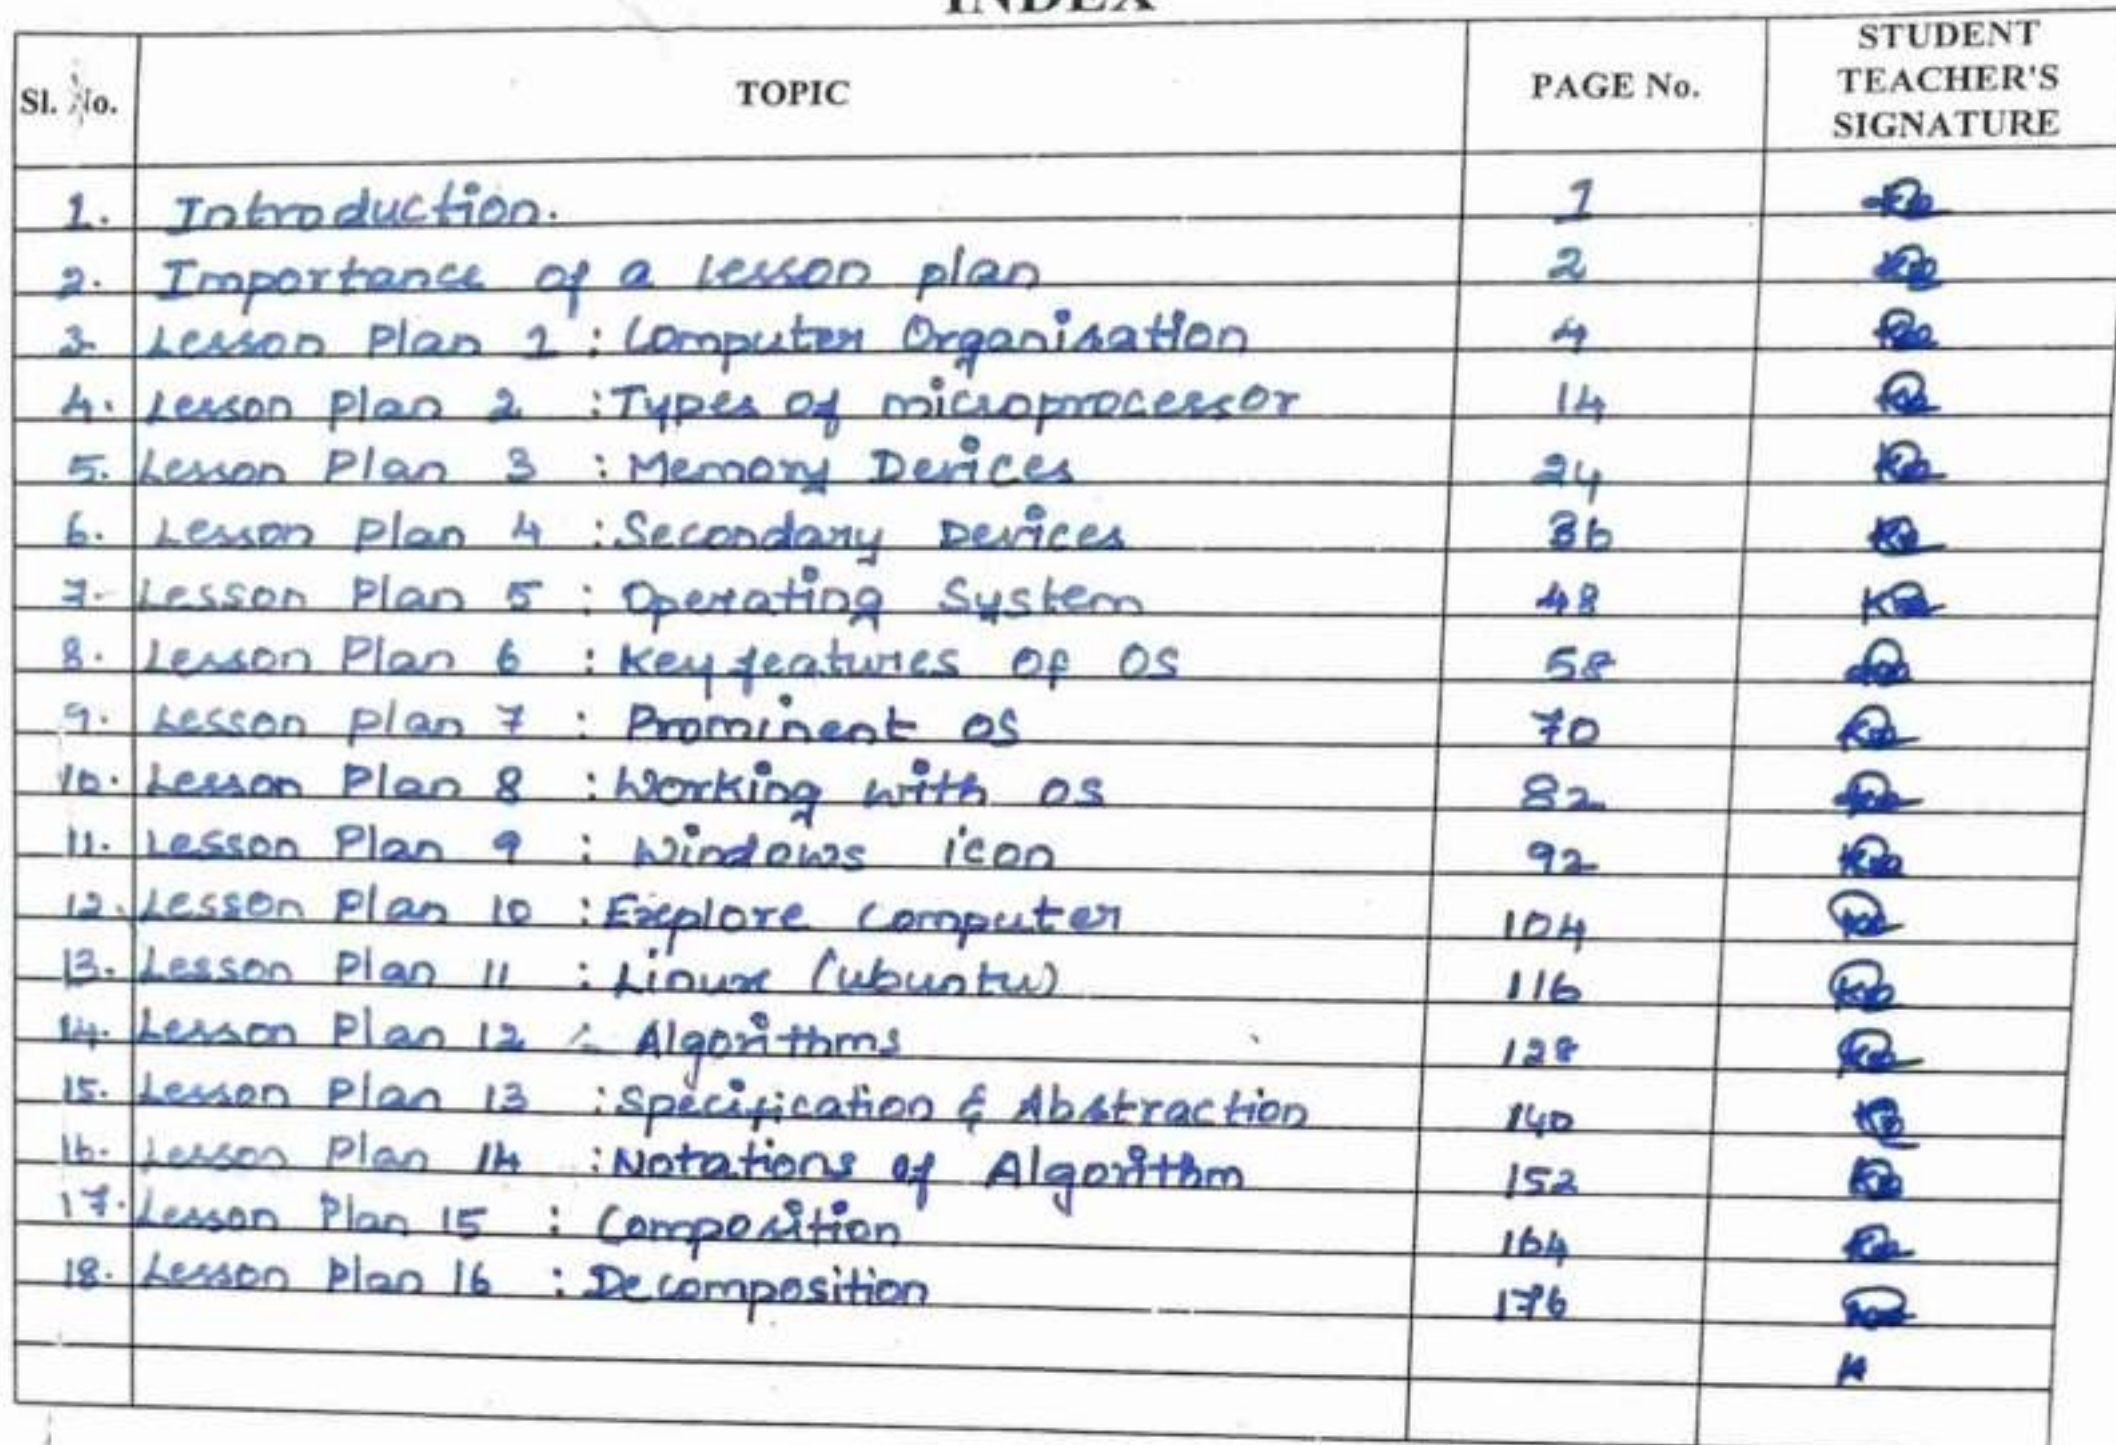 INDEX
Sl. No. TOPIC PAGE No. STUDENT TEACHER'S SIGNATURE
1. Introduction. 1
2. Importance of a lesson plan 2
3. Lesson Plan 1 : Computer Organisation 4
4. Lesson Plan 2 : Types of microprocessor 14
5. Lesson Plan 3 : Memory Devices 24
6. Lesson Plan 4 : Secondary Devices 36
7. Lesson Plan 5 : Operating System 48
8. Lesson Plan 6 : Key features of OS 58
9. Lesson Plan 7 : Prominent OS 70
10. Lesson Plan 8 : Working with OS 82
11. Lesson Plan 9 : Windows icon 92
12. Lesson Plan 10 : Explore Computer 104
13. Lesson Plan 11 : Linux (ubuntu) 116
14. Lesson Plan 12 : Algorithms 128
15. Lesson Plan 13 : Specification & Abstraction 140
16. Lesson Plan 14 : Notations of Algorithm 152
17. Lesson Plan 15 : Composition 164
18. Lesson Plan 16 : Decomposition 176